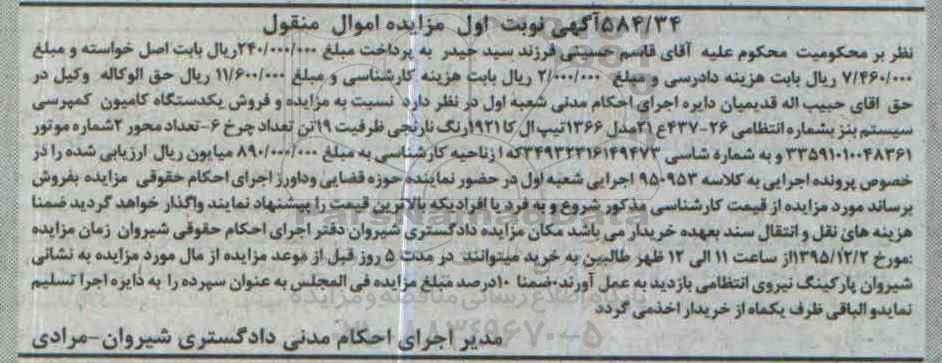 ۵۸۴/۳۴آگهی نوبت اول مزایده اموال منقول
نظر بر محکومیت محکوم علیه آقای قاسم حسینی فرزند سید حیدر به پرداخت مبلغ ۲۴۰/۰۰۰/۰۰۰ریال بابت اصل خواسته و مبلغ
۷/۴۶۰/۰۰۰ ریال بابت هزینه دادرسی و مبلغ ۲/۰۰۰/۰۰۰ ریال بابت هزینه کارشناسی و مبلغ ۱۱/۶۰۰/۰۰۰ ریال حق الوکاله وکیل در
حق اقای حبیب اله قدیمیان دایره اجرای احکام مدنی شعبه اول در نظر دارد نسبت به مزایده و فروش یکدستگاه کامیون کمپرسی
سیستم بنز بشماره انتظامی ۲۶-۴۳۷ع۲۱مدل ۱۳۶۶تیپ ال کا۱۹۲۱رنگ نارنجی ظرفیت ۱۹تن تعداد چرخ ۶-تعداد محور ۲شماره موتور
۳۳۵۹۱۰۱۰۰۴۸۳۶۱ و به شماره شاسی ۳۴۹۳۲۳۱۶۱۴۹۴۷۳که ازناحیه کارشناسی به مبلغ ۸۹۰/۰۰۰/۰۰۰ میابون ریال ارزیابی شده را در
خصوص پرونده اجرایی به کلاسه ۹۵۰۹۵۳ اجرایی شعبه اول در حضور نماینده حوزه قضایی وداورز اجرای احکام حقوقی مزایده بفروش
برساند مورد مزایده از قیمت کارشناسی مذکور شروع و به فرد یا افرادیکه بالاترین قیمت را پیشنهاد نمایند واگذار خواهد گردید ضمنا
هزینه های نقل و انتقال سند بعهده خریدار می باشد مکان مزایده دادگستری شیروان دفتر اجرای احکام حقوقی شیروان زمان مزایده
:مورخ ۱۳۹۵/۱۲/۲از ساعت ۱۱ الی ۱۲ ظهر طالبین به خرید میتوانند در مدت ۵ روز قبل از موعد مزایده از مال مورد مزایده به نشانی
شیروان پارکینگ نیروی انتظامی بازدید به عمل آورند۰ضمنا ۱۰درصد مبلغ مزایده فی المجلس به عنوان سپرده را به دایره اجرا تسلیم
نمایدو الباقی ظرف یکماه از خریدار اخذمی گردد
مدیر اجرای احکام مدنی دادگستری شیروان-مرادی
ParsNamadData
پایگاه اطلاع رسانی مناقصه و مزایده